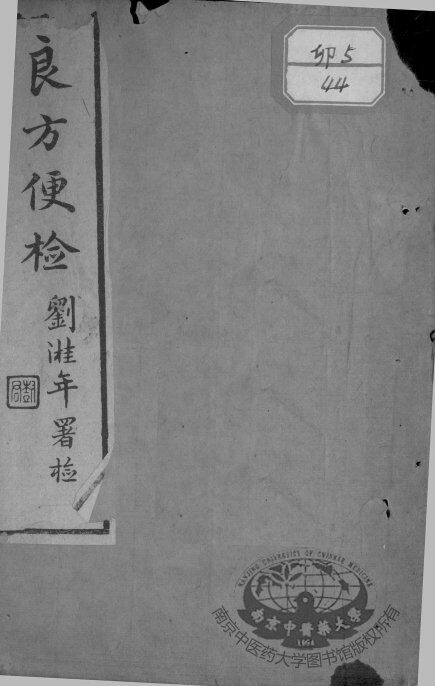 良方便检
劉淮年署检
卯5
44
NANJING UNIVERSITY OF CHINESE MEDICINE
南京中醫藥大學
1954
南京中医药大学图书馆版权所有